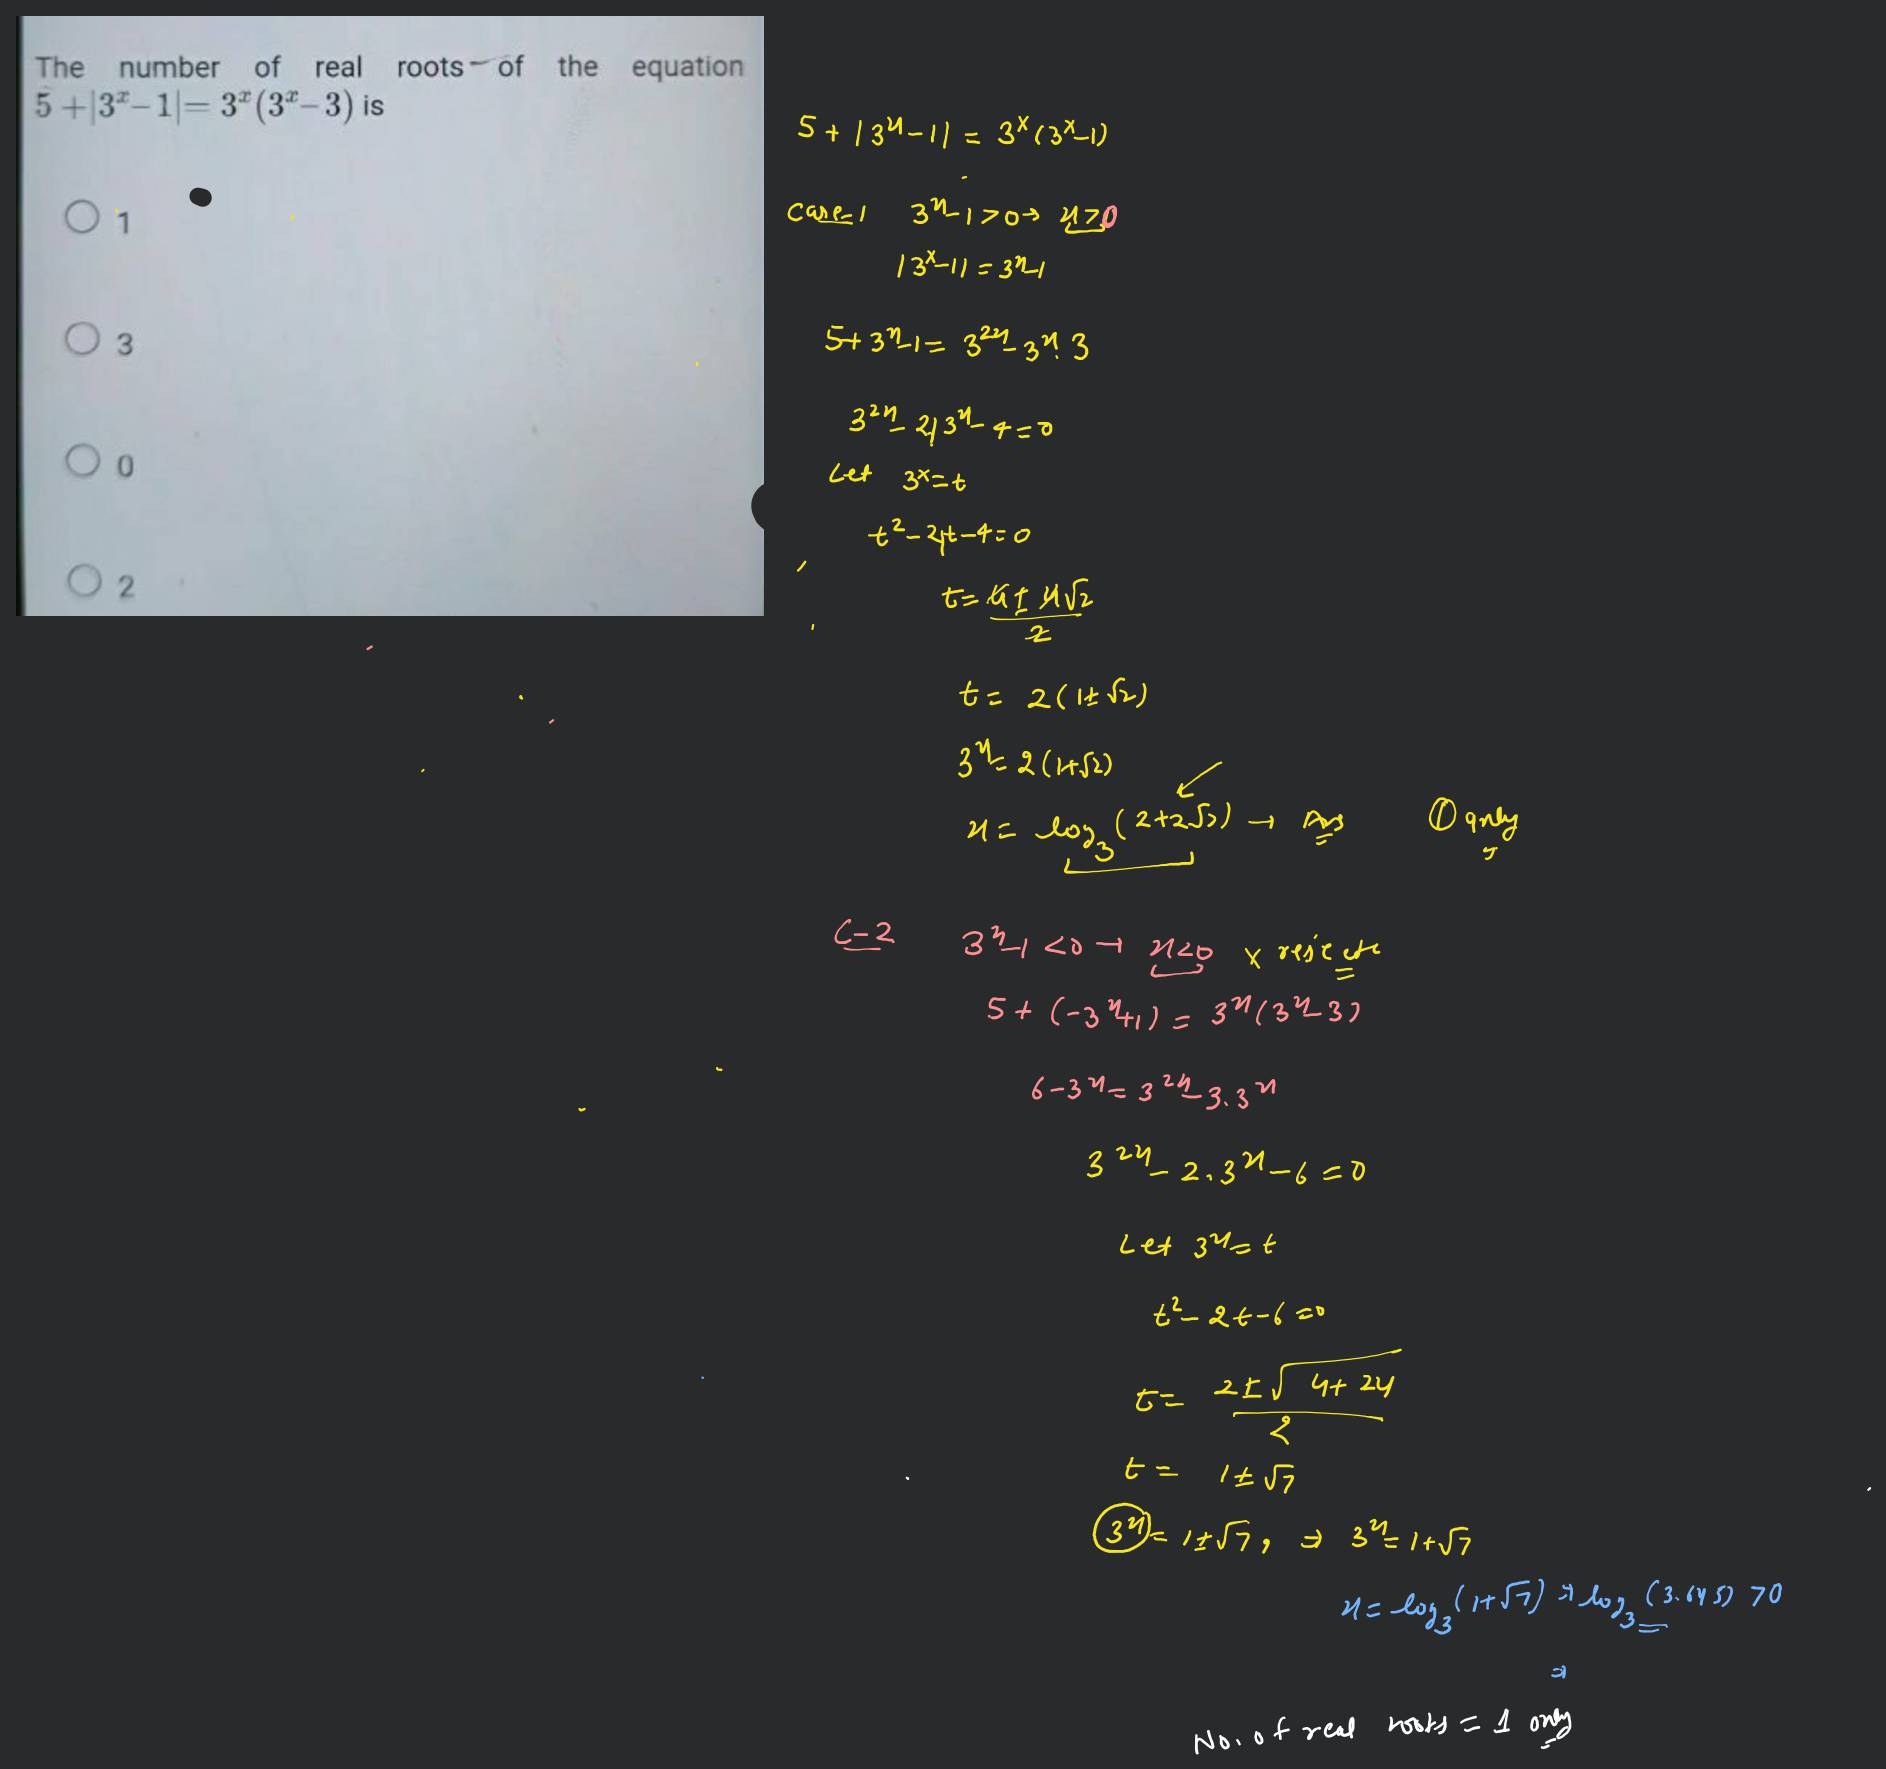 The number of real roots of the equation
5 + |3^x − 1| = 3^x (3^x − 3) is
1
3
0
2
5 + |3^x − 1| = 3^x (3^x − 1)
Case-1 3^x − 1 > 0 → x > 0
|3^x − 1| = 3^x − 1
5 + 3^x − 1 = 3^2x − 3^x · 3
3^2x − 4 3^x − 4 = 0
Let 3^x = t
t² − 4t − 4 = 0
t = 4 ± 4√2 / 2
t = 2(1 ± √2)
3^x = 2(1+√2)
x = log₃(2+2√2) → Ans ① only
C-2 3^x − 1 < 0 → x < 0 x
5 + (−3^x + 1) = 3^x (3^x − 3)
6 − 3^x = 3^2x − 3.3^x
3^2x − 2.3^x − 6 = 0
Let 3^x = t
t² − 2t − 6 = 0
t = 2 ± √4 + 24 / 2
t = 1 ± √7
3^x = 1 ± √7, ⇒ 3^x = 1 + √7
x = log₃(1+√7) ⇒ log₃(3.645) > 0
⇒
No. of real roots = 1 only